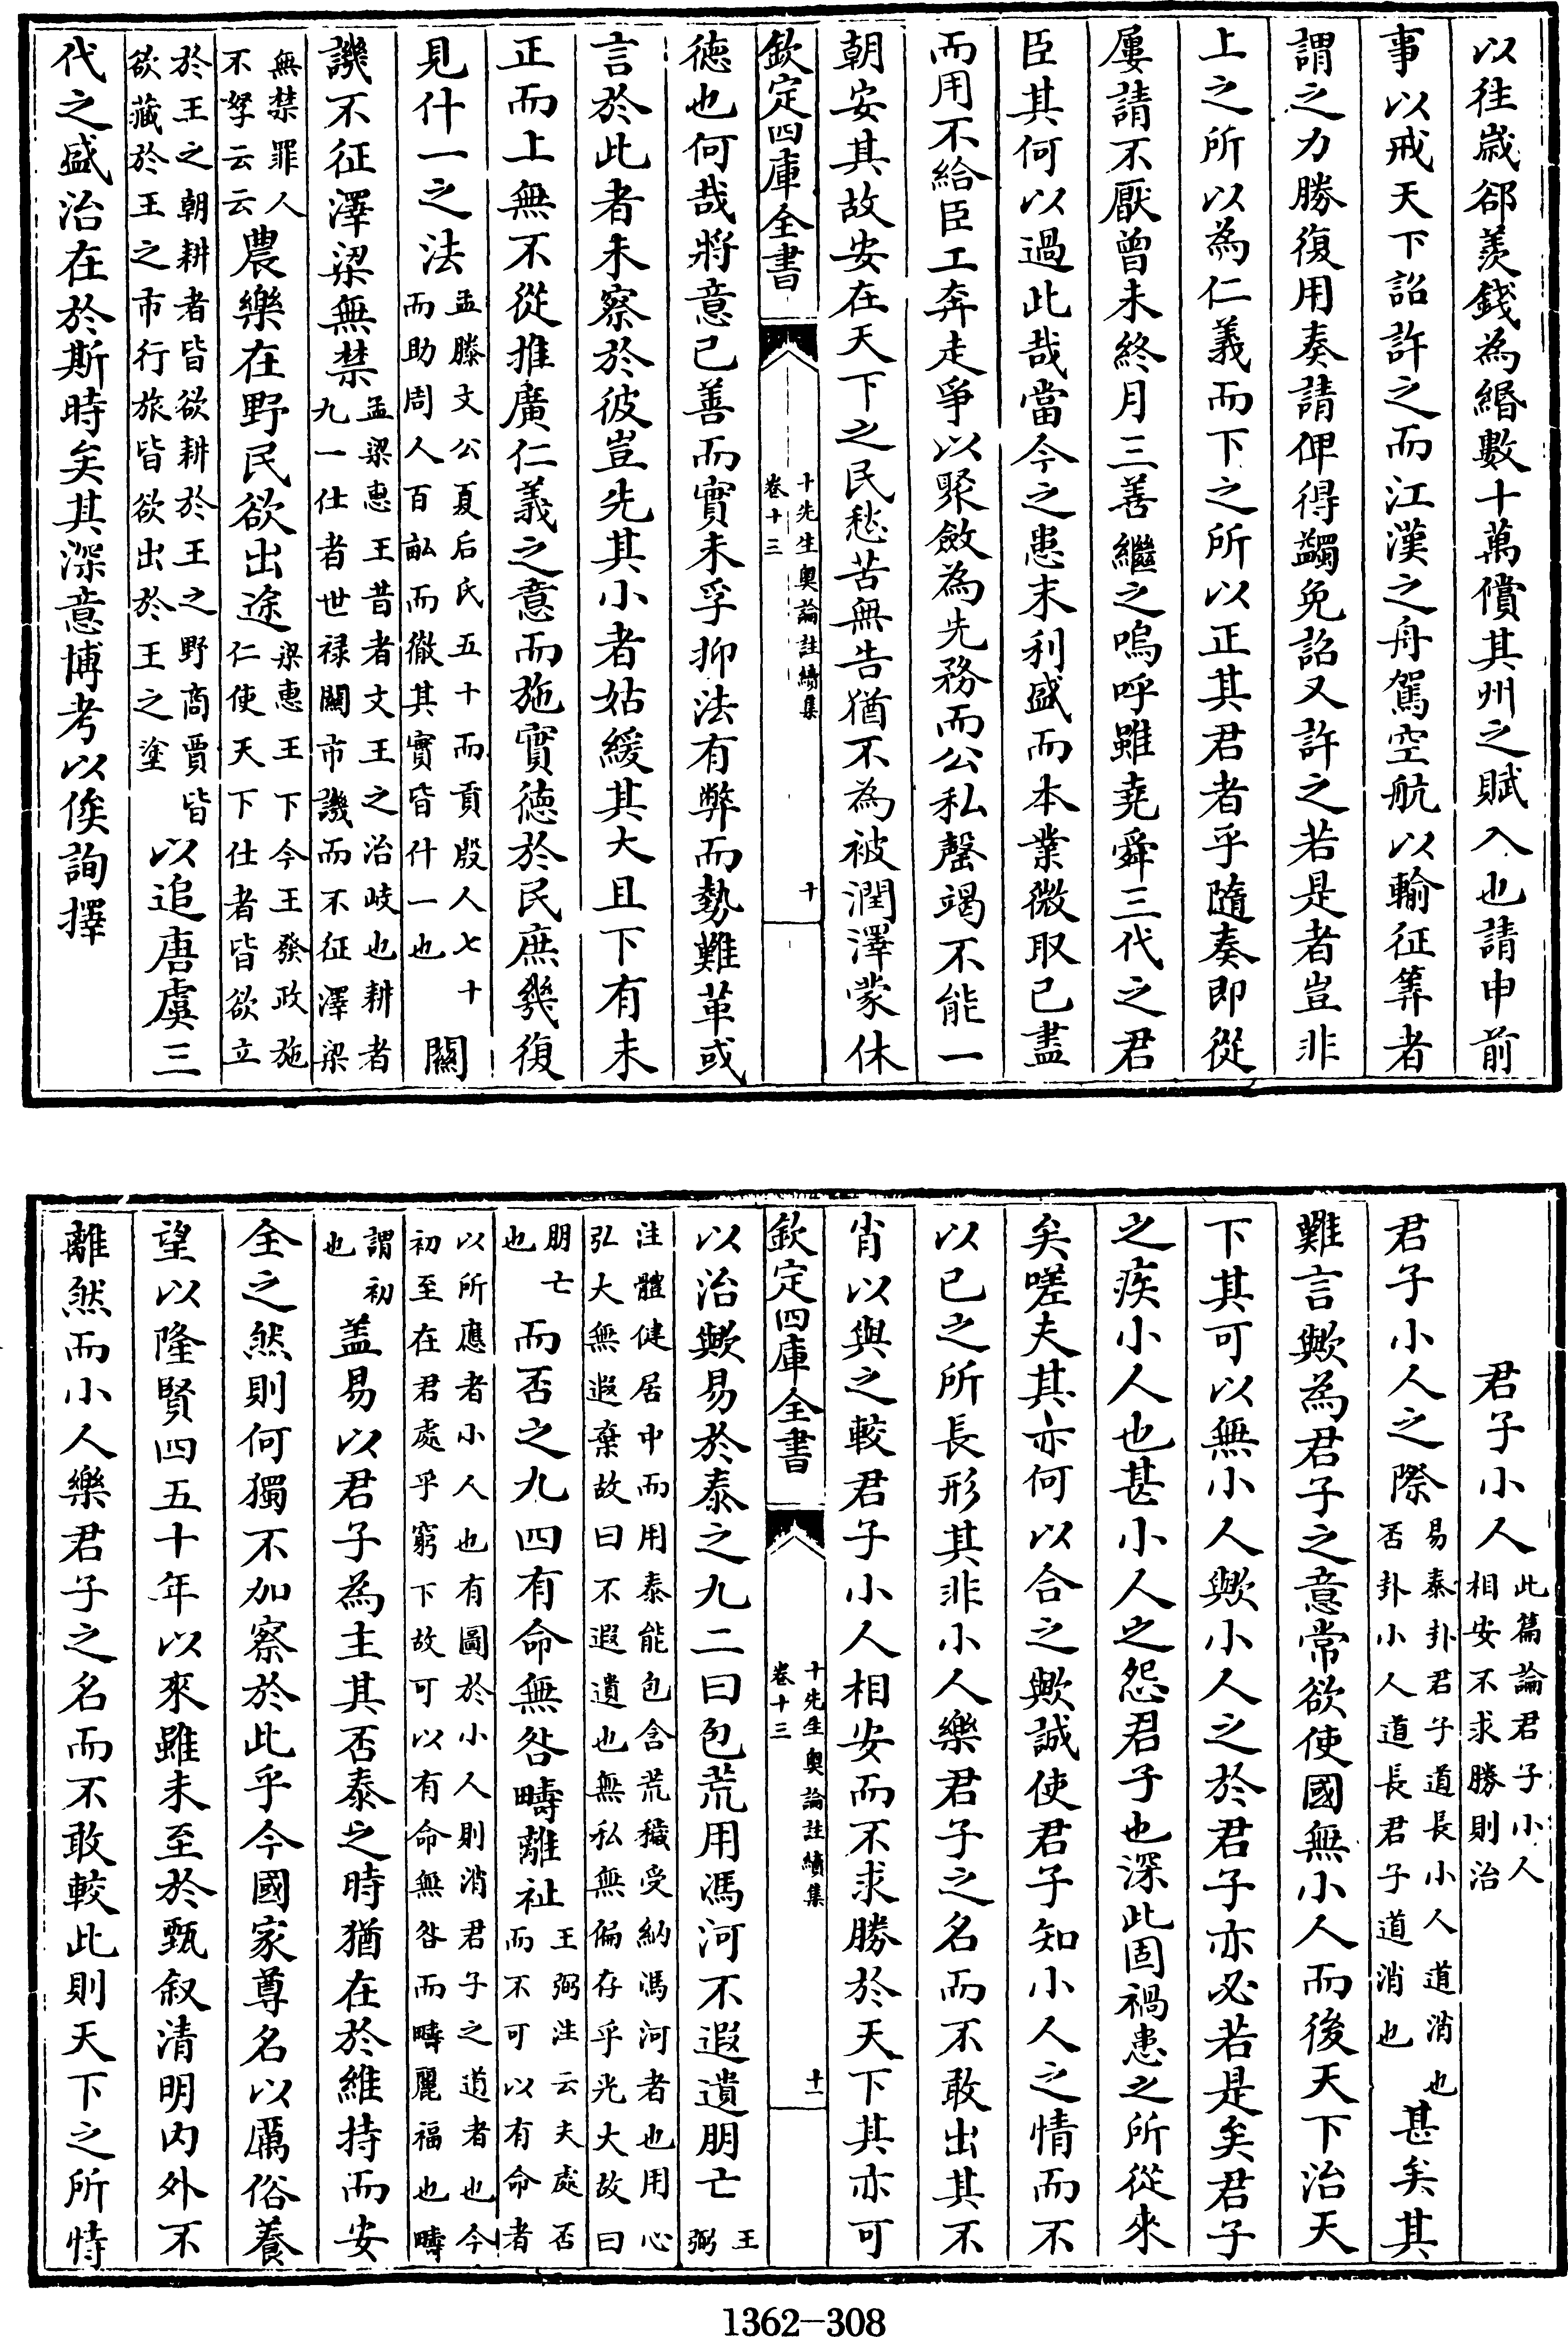 以往歲郤羡錢為緡數十萬償其州之賦入也請申前
事以戒天下詔許之而江漢之舟駕空航以輸征筭者
謂之力勝復用奏請俾得蠲免詔又許之若是者豈非
上之所以為仁義而下之所以正其君者乎隨奏即從
屢請不厭曾未終月三善繼之嗚呼雖堯舜三代之君
臣其何以過此哉當今之患末利盛而本業微取已盡
而用不給臣工奔走爭以聚斂為先務而公私罄竭不能一
朝安其故安在天下之民愁苦無告猶不為被潤澤蒙休
欽定四庫全書
十先生奧論註續集
卷十三
十
德也何哉將意已善而實未孚抑法有弊而勢難革或
言於此者未察於彼豈先其小者姑緩其大且下有未
正而上無不從推廣仁義之意而施實德於民庶幾復
見什一之法孟滕文公夏后氏五十而貢殷人七十而助周人百畝而徹其實皆什一也關
譏不征澤梁無禁孟梁惠王昔者文王之治岐也耕者九一仕者世祿關市譏而不征澤梁
無禁罪人不孥云云農樂在野民欲出途梁惠王下今王發政施仁使天下仕者皆欲立
於王之朝耕者皆欲耕於王之野商賈皆欲藏於王之市行旅皆欲出於王之塗以追唐虞三
代之盛治在於斯時矣其深意博考以俟詢擇
君子小人此篇論君子小人相安不求勝則治
君子小人之際易泰卦君子道長小人道消也否卦小人道長君子道消也甚矣其
難言歟為君子之意常欲使國無小人而後天下治天
下其可以無小人歟小人之於君子亦必若是矣君子
之疾小人也甚小人之怨君子也深此固禍患之所從來
矣嗟夫其亦何以合之歟誠使君子知小人之情而不
以已之所長形其非小人樂君子之名而不敢出其不
肖以與之較君子小人相安而不求勝於天下其亦可
欽定四庫全書
十先生奧論註續集
卷十三
十一
以治歟易於泰之九二曰包荒用馮河不遐遺朋亡王弼
注體健居中而用泰能包含荒穢受納馮河者也用心弘大無遐棄故曰不遐遺也無私無偏存乎光大故曰
朋亡也而否之九四有命無咎疇離祉王弼注云夫處否而不可以有命者
以所應者小人也有圖於小人則消君子之道者也今初至在君處乎窮下故可以有命無咎而疇麗福也疇
謂初也盖易以君子為主其否泰之時猶在於維持而安
全之然則何獨不加察於此乎今國家尊名以厲俗養
望以隆賢四五十年以來雖未至於甄叙清明內外不
離然而小人樂君子之名而不敢較此則天下之所恃
1362-308